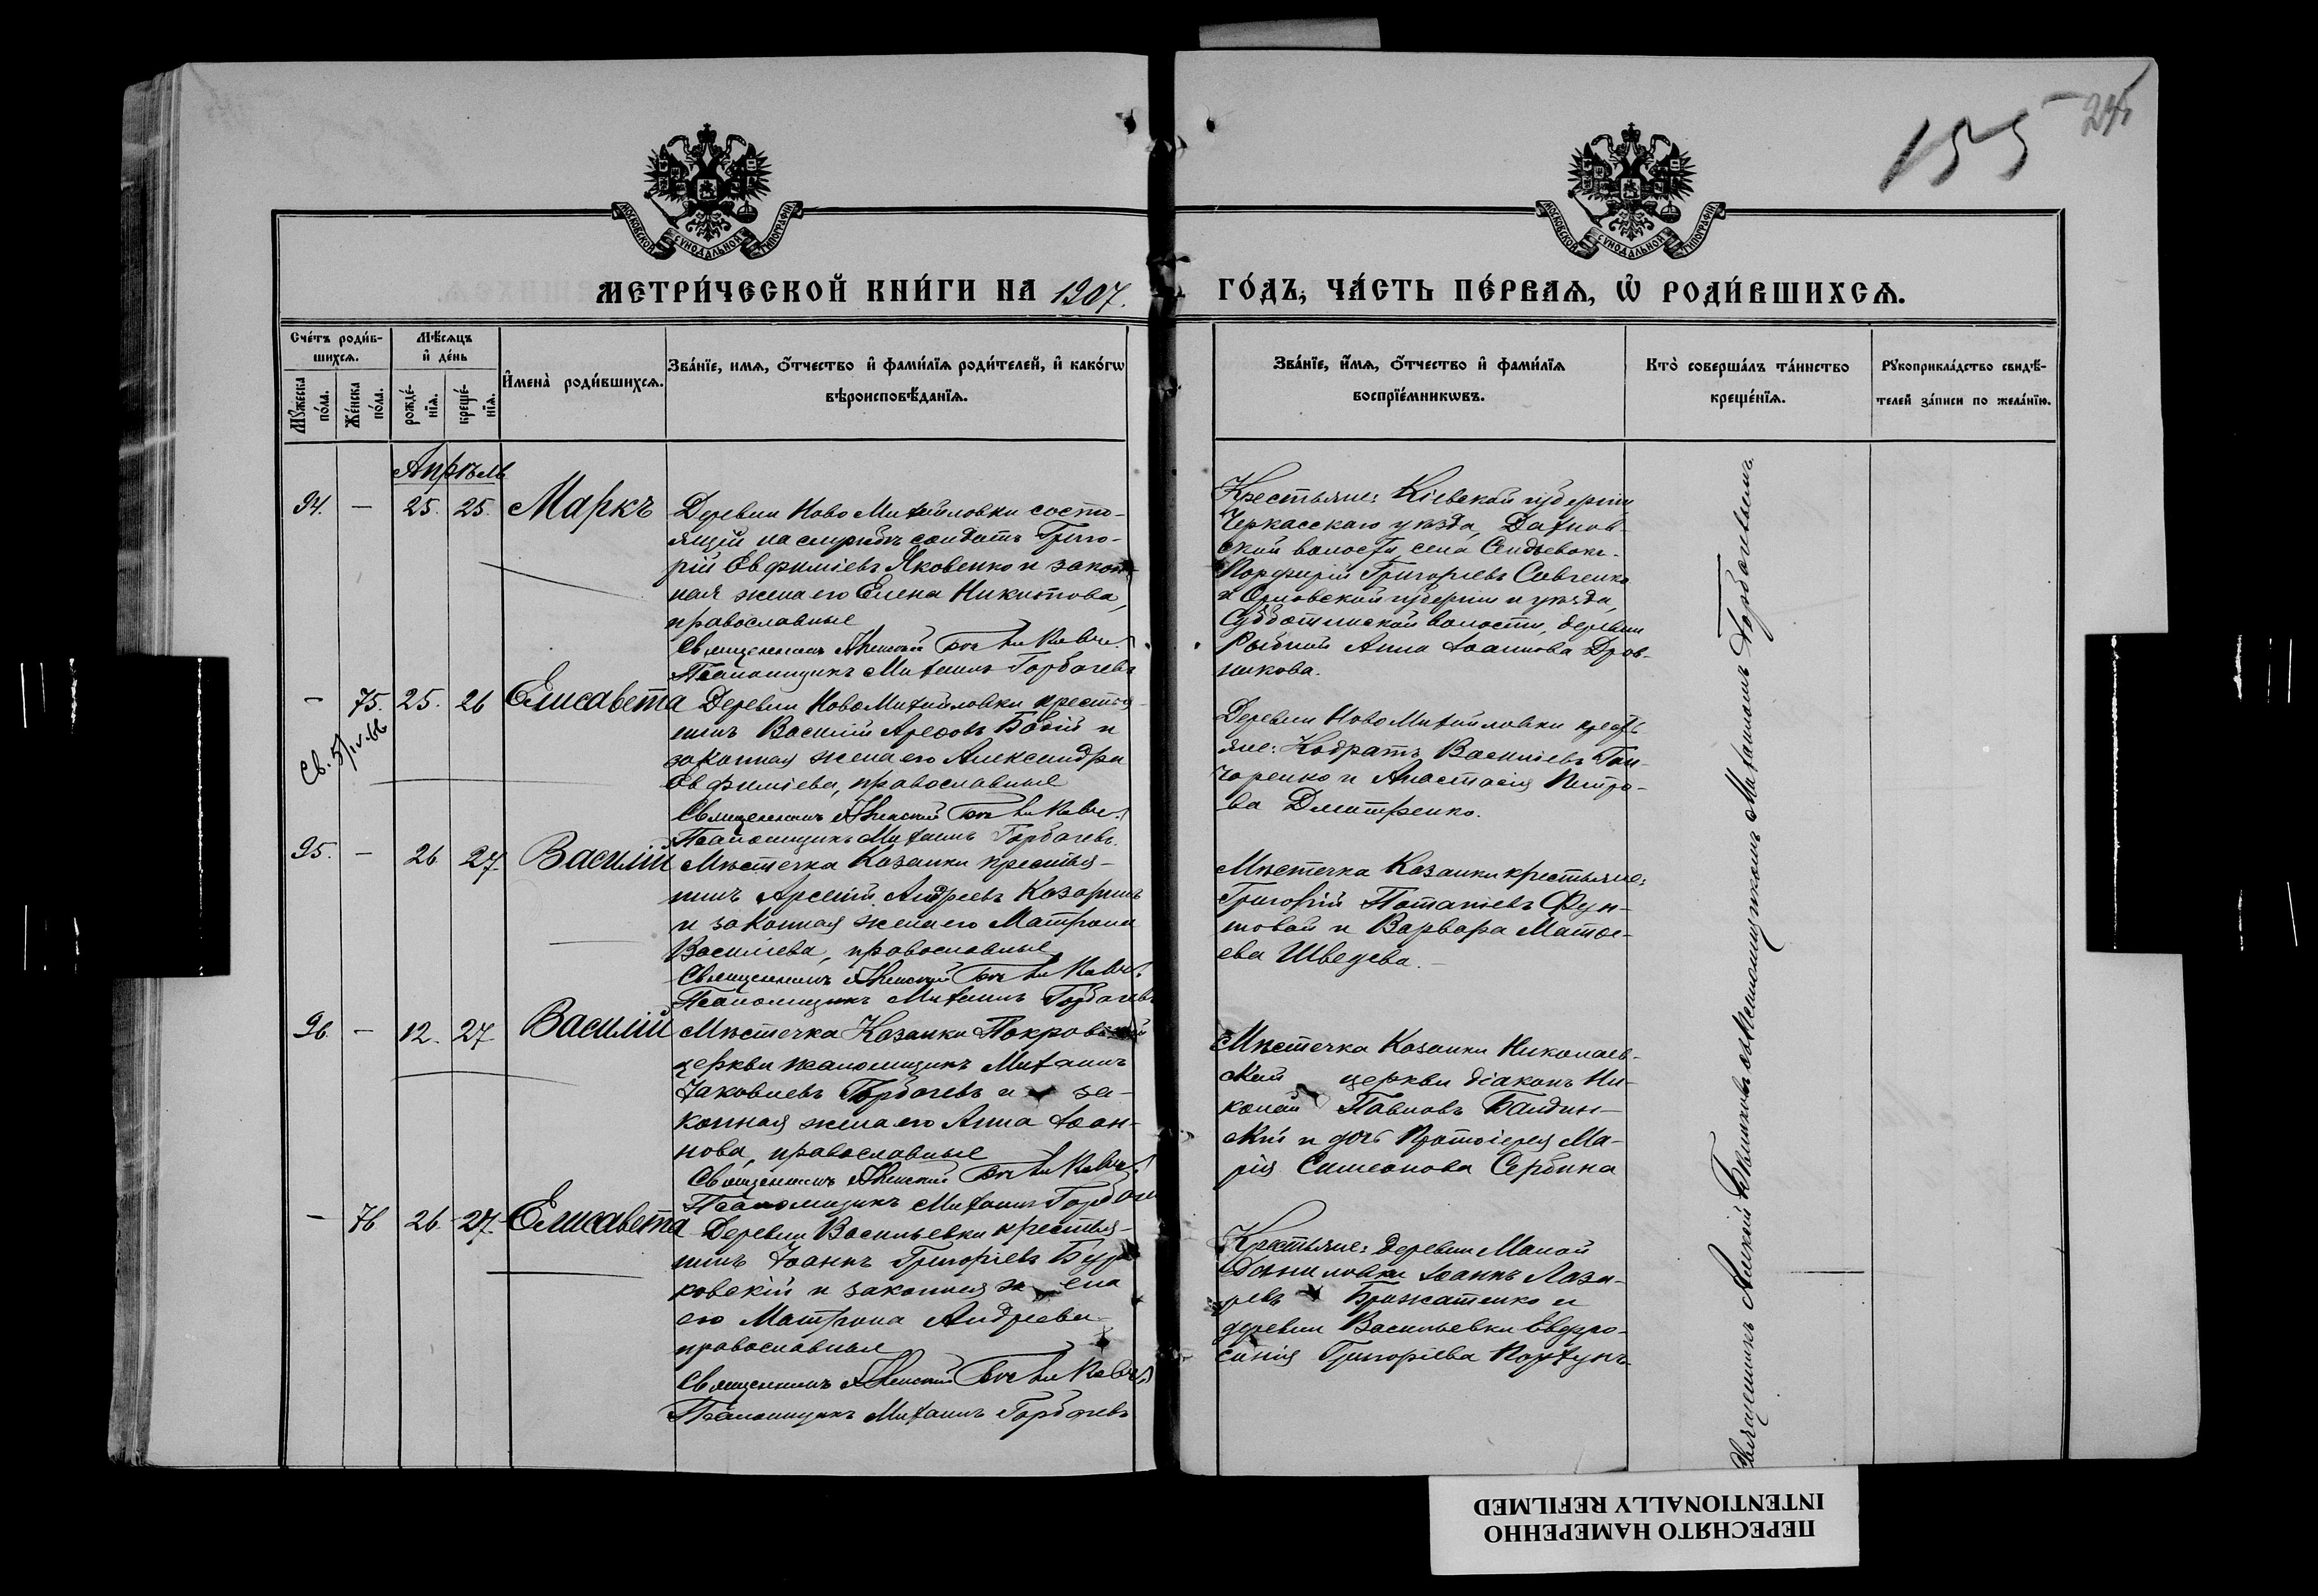 155
МОСКОВСКОЙ СѴНОДАЛЬНОЙ ТИПОГРАФІИ
МОСКОВСКОЙ СѴНОДАЛЬНОЙ ТИПОГРАФІИ
МЕТРИ́ЧЕСКОЙ КНИ́ГИ НА 1907.
ГО́ДЪ, ЧА́СТЬ ПЕ́РВАѦ, Ѽ РОДИ́ВШИХСѦ.
Сче́тъ роди́в-
шихсѧ.
Мѣ́сѧцъ
и҆ де́нь
Мꙋ́жеска
по́ла.
Же́нска
по́ла.
рожде́-
нїѧ.
креще́-
нїѧ.
И҆мена̀ роди́вшихсѧ.
Зва́нїе, имѧ, ѻ҆́тчество и҆ фами́лїѧ роди́телей, и҆ како́гѡ
вѣроисповѣ́данїѧ.
Зва́нїе, и҆́мѧ, ѻ҆́тчество и҆ фами́лїѧ
воспрїе́мникѡвъ.
Кто̀ соверша́лъ та́инство
креще́нїѧ.
Рꙋкоприкла́дство свидѣ́-
телей за́писи по жела́нїю.
Апрѣль
94. — 25. 25. Маркъ
Деревни Ново Михайловки состо-
ящій на службѣ солдатъ Григо-
рій Евфиміевъ Яковенко и закон-
ная жена его Елена Никитова,
православные
Священникъ
Псаломщикъ Михаилъ Горбачевъ
Крестьяне: Кіевской губерніи
Черкасскаго уѣзда,
ской волости, села
Порфирій Григорьевъ Савченко
и Орловской губерніи и уѣзда,
волости, деревни
Анна Іоаннова Дров-
никова.
— 75. 25. 26 Елисавета
Св. 5/IV-66
Деревни Ново Михайловки крестья-
нинъ Василій и
законная жена его Александра
Евфиміева, православные
Священникъ
Псаломщикъ Михаилъ Горбачевъ.
Деревни Ново Михайловки кресть-
яне: Кодратъ Василіевъ Гон-
чаренко и Анастасія Петро-
ва Дмитренко.
95. — 26 27. Василій
Мѣстечка Казанки крестья-
нинъ Арсеній Андреевъ Козаринъ
и законная жена его Матрона
Василіева, православные
Священникъ
Псаломщикъ Михаилъ Горбачевъ
Мѣстечка Казанки крестьяне:
Григорій Потапіевъ Фун-
товой и Варвара Матѳе-
ева Шведова.
96. — 12. 27 Василій
Мѣстечка Казанки Покровской
церкви псаломщикъ Михаилъ
Іаковлевъ Горбачевъ и за-
конная жена его Анна Іоан-
нова, православные
Священникъ
Псаломщикъ Михаилъ Горбачевъ
Мѣстечка Казанки Николаев-
ской церкви діаконъ Ни-
колай Павловъ Балдин-
скій и дочь Протоіерея Ма-
рія Симеонова Сербина
— 76 26. 27. Елисавета
Деревни Васильевки крестья-
нинъ Іоаннъ Григоріевъ Бур-
ковскій и законная жена
его Матрона Андреева
православные
Священникъ
Псаломщикъ Михаилъ Горбачевъ
Крестьяне: деревни Малой
Даниловки Іоаннъ Лаза-
ревъ Брижатенко и
деревни Васильевки Евфро-
синія Григоріева
Священникъ съ Псаломщикомъ Михаиломъ Горбачевымъ
ПЕРЕСНЯТО НАМЕРЕННО
INTENTIONALLY REFILMED